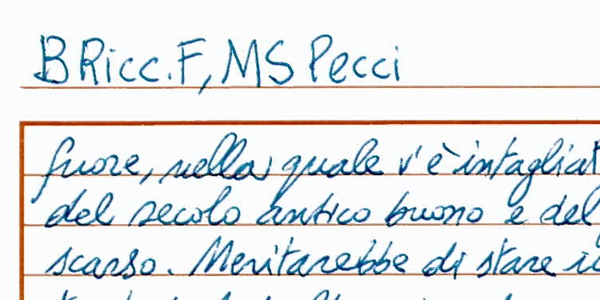 BRicc.F, MS Pecci
fuore, nella quale v'è intagliat
del secolo antico buono e del
scarso. Meritarebbe di stare